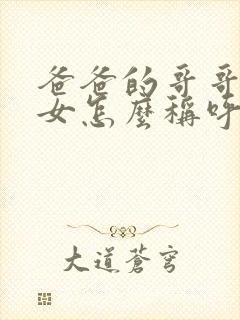 爸爸的哥哥
女怎麼稱呼
大道蒼穹